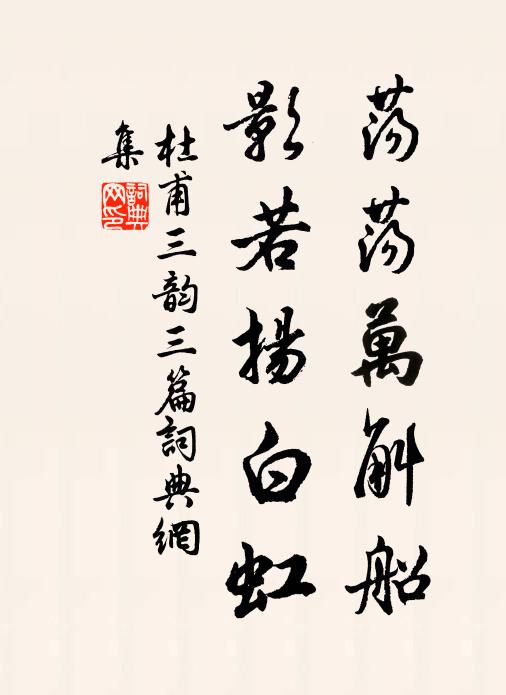 蕩蕩萬斛船
影若揚白虹
杜甫三韵三篇詞典網
集
詞典網印